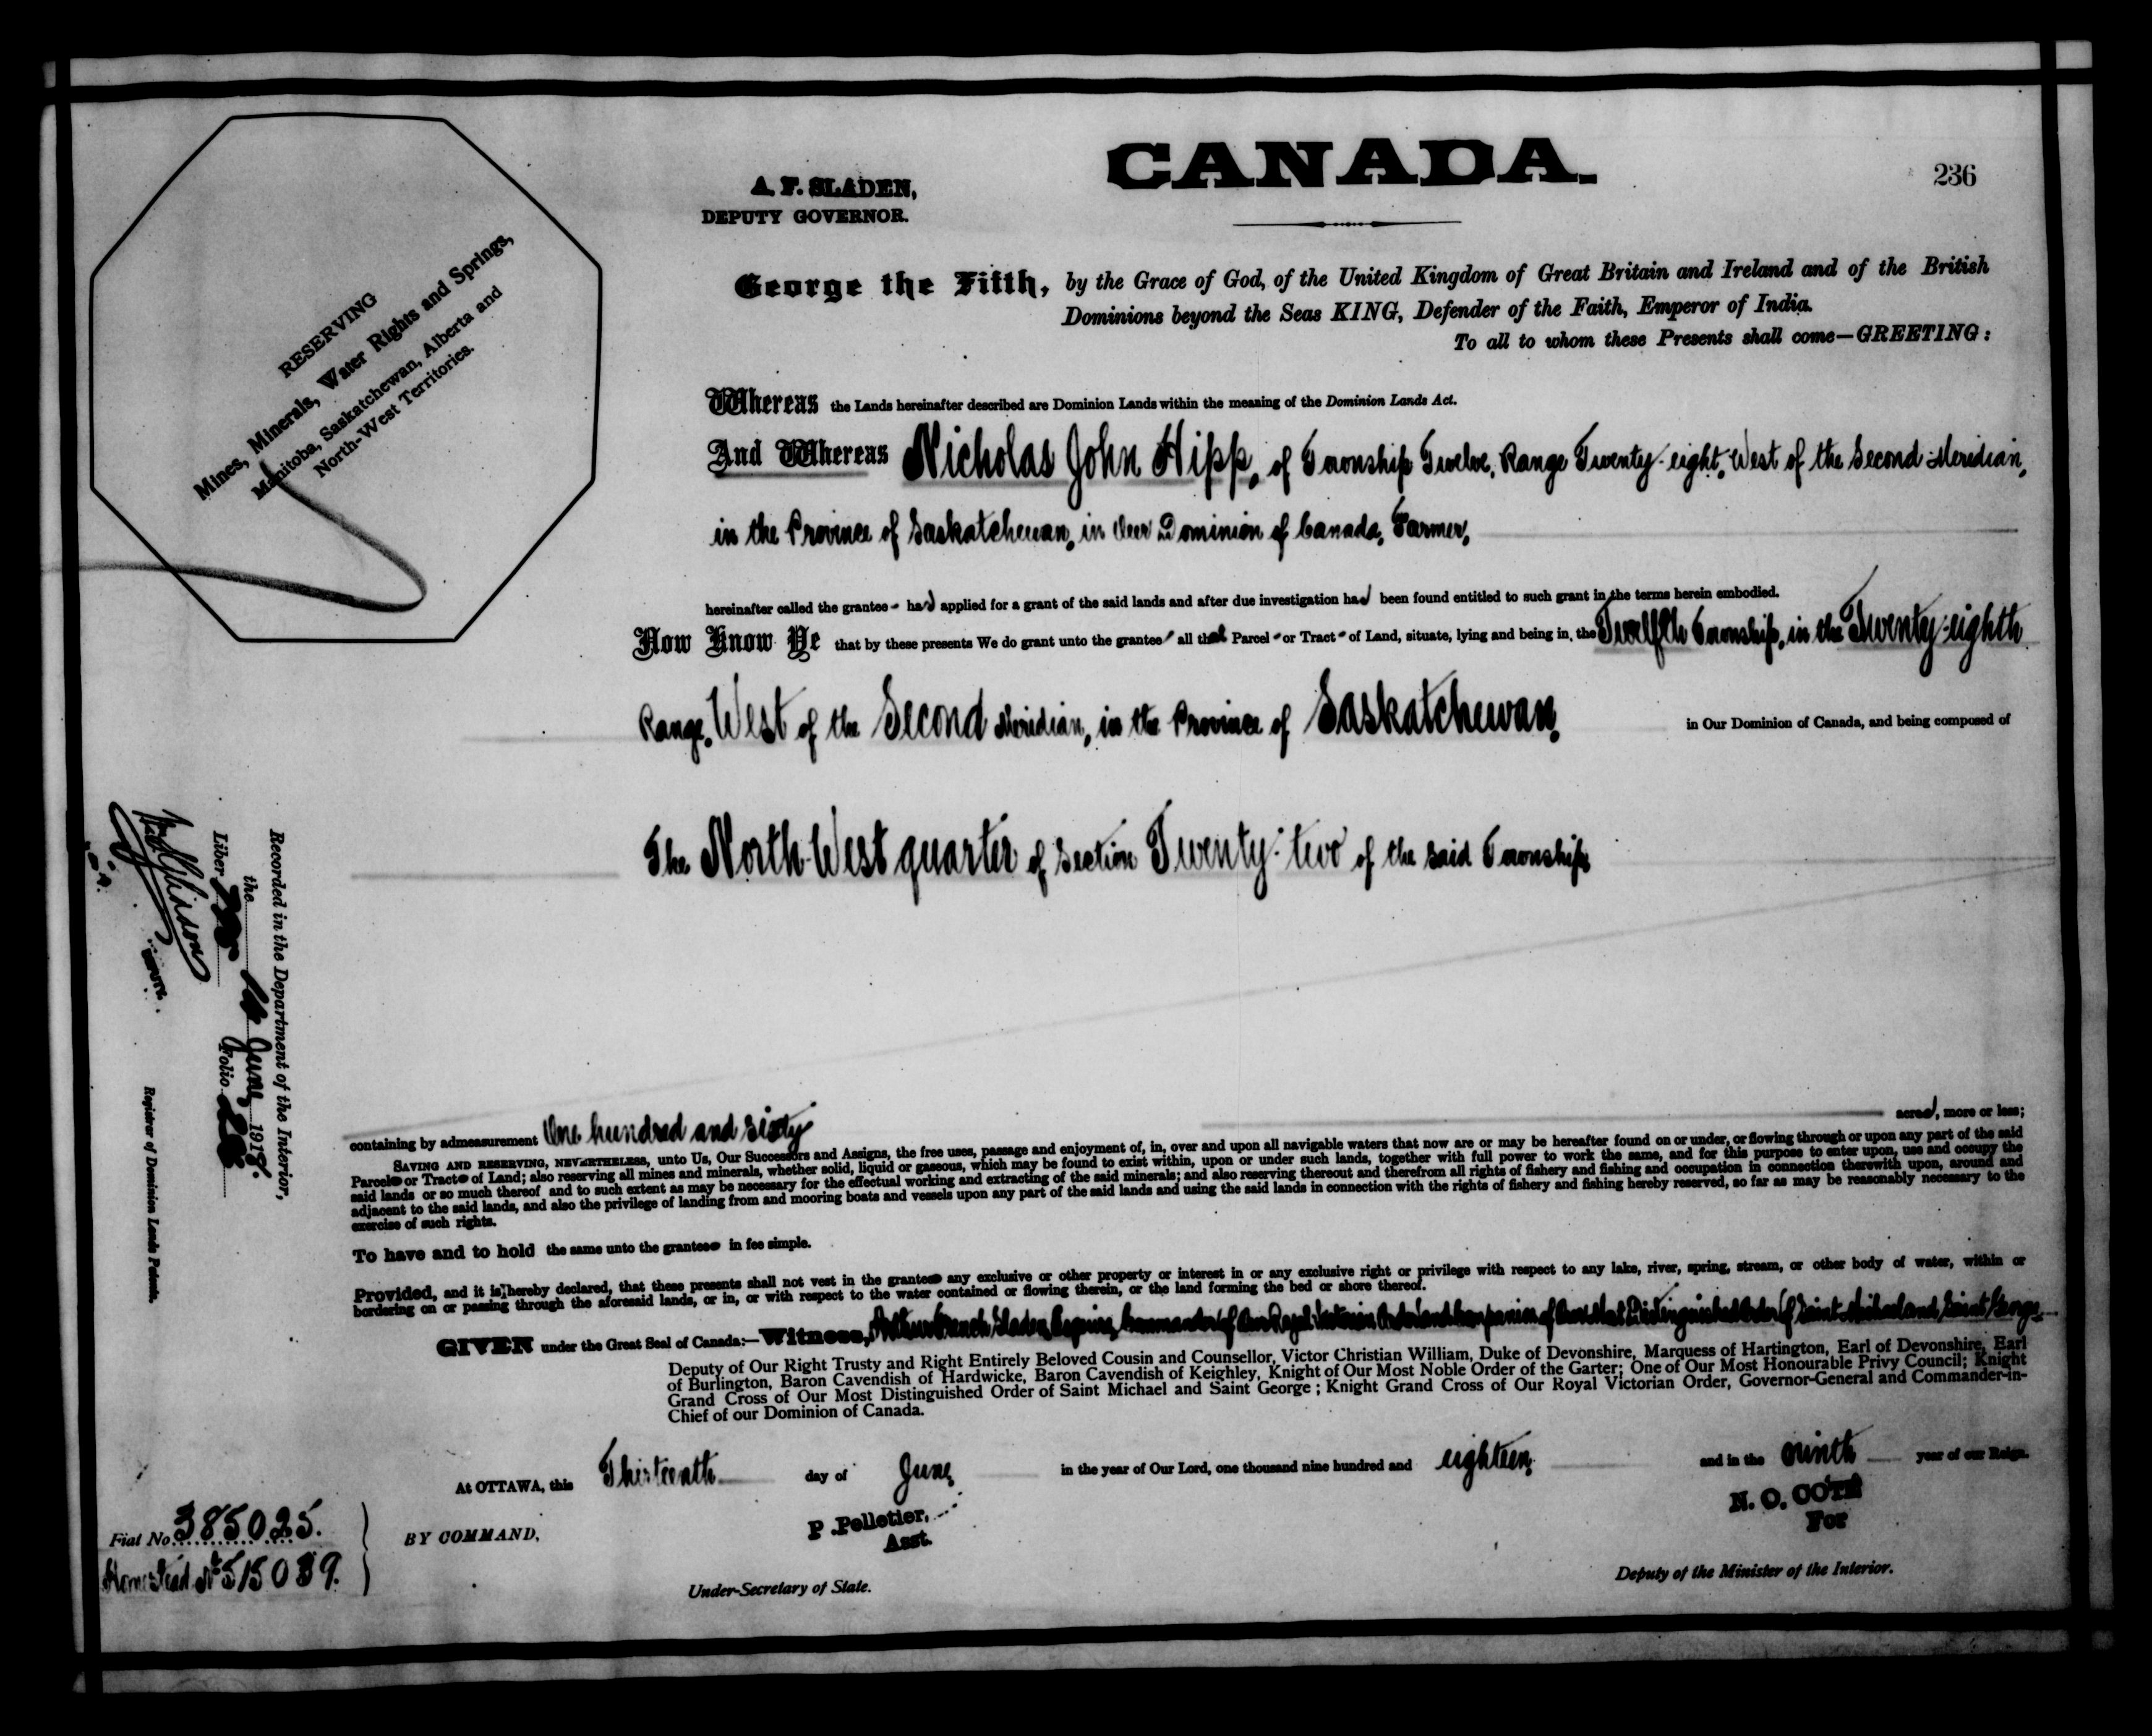 CANADA.
236
A. F. SLADEN,
DEPUTY GOVERNOR.
RESERVING
Mines, Minerals, Water Rights and Springs,
Manitoba, Saskatchewan, Alberta and
North-West Territories.
George the Fifth, by the Grace of God, of the United Kingdom of Great Britain and Ireland and of the British
Dominions beyond the Seas KING, Defender of the Faith, Emperor of India.
To all to whom these Presents shall come—GREETING:
Whereas the Lands hereinafter described are Dominion Lands within the meaning of the Dominion Lands Act.
And Whereas Nicholas John Hipp, of Township Twelve, Range Twenty-eight, West of the Second Meridian,
in the Province of Saskatchewan, in Our Dominion of Canada, Farmer,
hereinafter called the grantee has applied for a grant of the said lands and after due investigation has been found entitled to such grant in the terms herein embodied.
Now Know Ye that by these presents We do grant unto the grantee all that Parcel or Tract of Land, situate, lying and being in, the Twelfth Township, in the Twenty-eighth
Range, West of the Second Meridian, in the Province of Saskatchewan, in Our Dominion of Canada, and being composed of
The North West quarter of Section Twenty-two of the said Township
containing by admeasurement One hundred and sixty acres, more or less;
SAVING AND RESERVING, NEVERTHELESS, unto Us, Our Successors and Assigns, the free uses, passage and enjoyment of, in, over and upon all navigable waters that now are or may be hereafter found on or under, or flowing through or upon any part of the said
Parcel or Tract of Land; also reserving all mines and minerals, whether solid, liquid or gaseous, which may be found to exist within, upon or under such lands, together with full power to work the same, and for this purpose to enter upon, use and occupy the
said lands or so much thereof and to such extent as may be necessary for the effectual working and extracting of the said minerals; and also reserving thereout and therefrom all rights of fishery and fishing and occupation in connection therewith upon, around and
adjacent to the said lands, and also the privilege of landing from and mooring boats and vessels upon any part of the said lands and using the said lands in connection with the rights of fishery and fishing hereby reserved, so far as may be reasonably necessary to the
exercise of such rights.
To have and to hold the same unto the grantee in fee simple.
Provided, and it is hereby declared, that these presents shall not vest in the grantee any exclusive or other property or interest in or any exclusive right or privilege with respect to any lake, river, spring, stream, or other body of water, within or
bordering on or passing through the aforesaid lands, or in, or with respect to the water contained or flowing therein, or the land forming the bed or shore thereof.
GIVEN under the Great Seal of Canada:—Witness, Arthur French Sladen, Esquire, Commander of Our Royal Victorian Order and Companion of Our Most Distinguished Order of Saint Michael and Saint George
Deputy of Our Right Trusty and Right Entirely Beloved Cousin and Counsellor, Victor Christian William, Duke of Devonshire, Marquess of Hartington, Earl of Devonshire, Earl
of Burlington, Baron Cavendish of Hardwicke, Baron Cavendish of Keighley, Knight of Our Most Noble Order of the Garter; One of Our Most Honourable Privy Council; Knight
Grand Cross of Our Most Distinguished Order of Saint Michael and Saint George; Knight Grand Cross of Our Royal Victorian Order, Governor-General and Commander-in-
Chief of our Dominion of Canada.
At OTTAWA, this Thirteenth day of June in the year of Our Lord, one thousand nine hundred and eighteen and in the ninth year of our Reign.
BY COMMAND,
P. Pelletier,
Asst.
Under-Secretary of State.
N. O. COTÉ
For
Deputy of the Minister of the Interior.
Fiat No. 385025.
Homestead No 515039.
Recorded in the Department of the Interior,
the June, 1918.
Liber Folio
Registrar of Dominion Lands Patents.